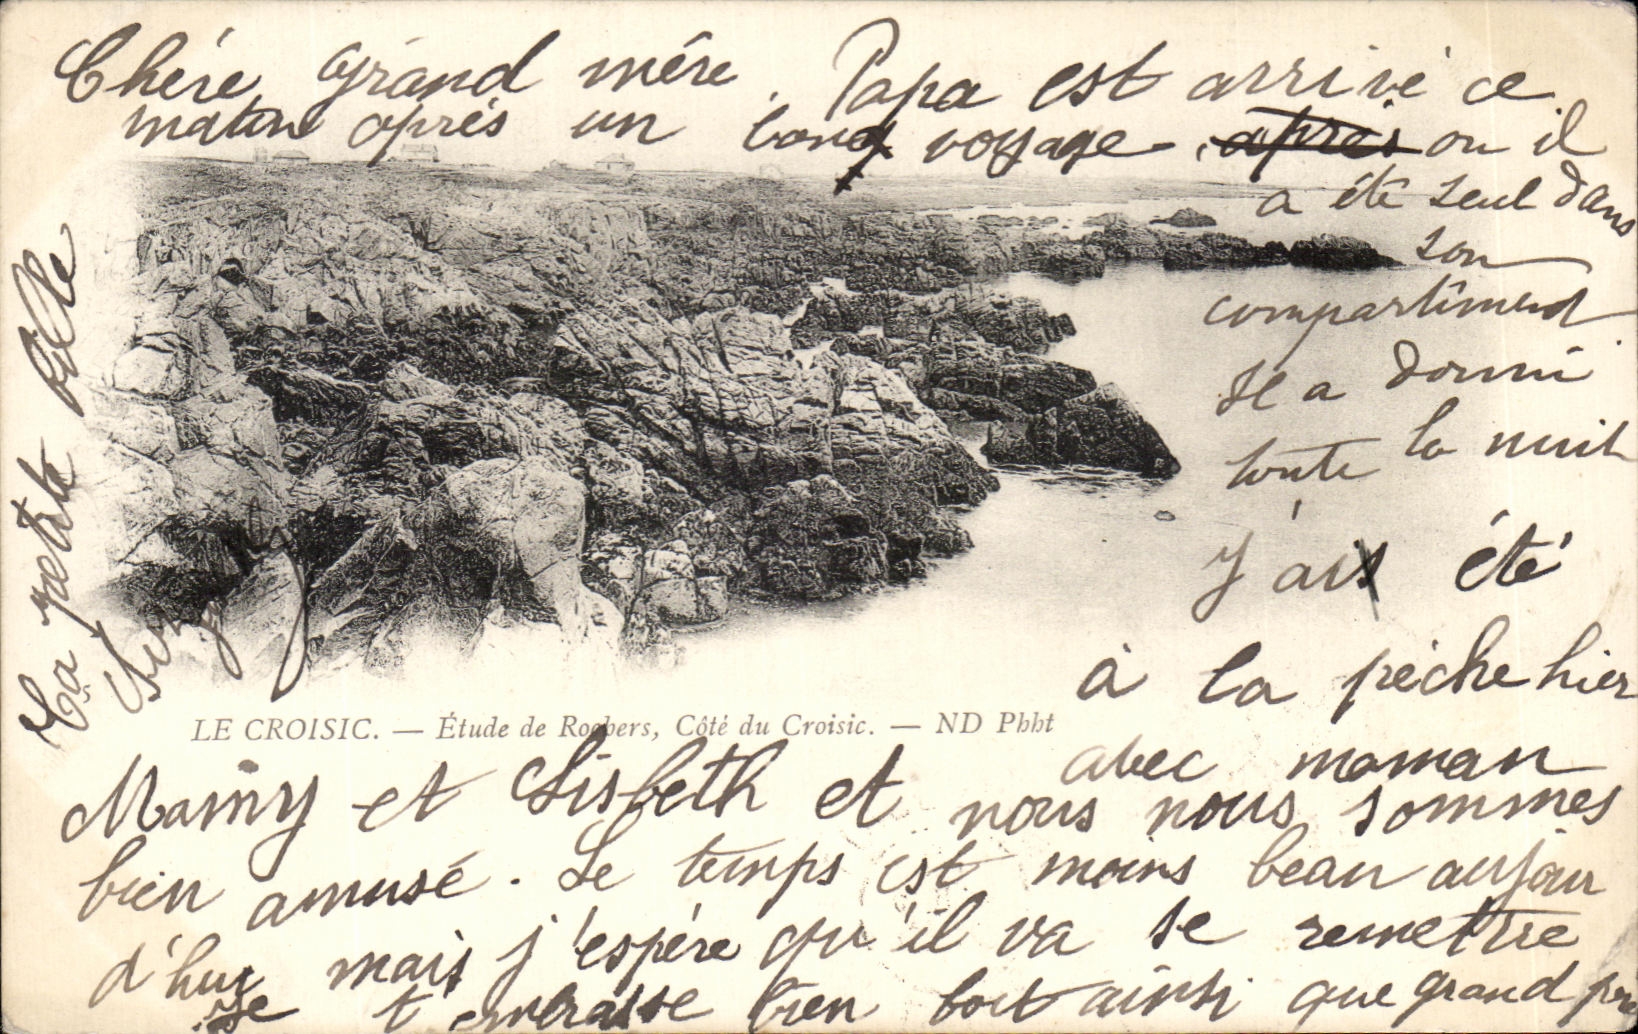 Chére grand mére. Papa est arrivé ce
matin aprés un bon voyage. aprés ou il
a été seul dans
son
compartiment
Il a dormi
toute la nuit
J'ai été
à la pèche hier
avec maman
Mainy et Lisbeth et nous nous sommes
bien amusé. Le temps est moins beau aujour
d'hui mais j'espére qu'il va se remettre
Je t'embrasse bien fort ainsi que grand pére
Ta petite fille
LE CROISIC. — Étude de Rochers, Côté du Croisic. — ND Phht